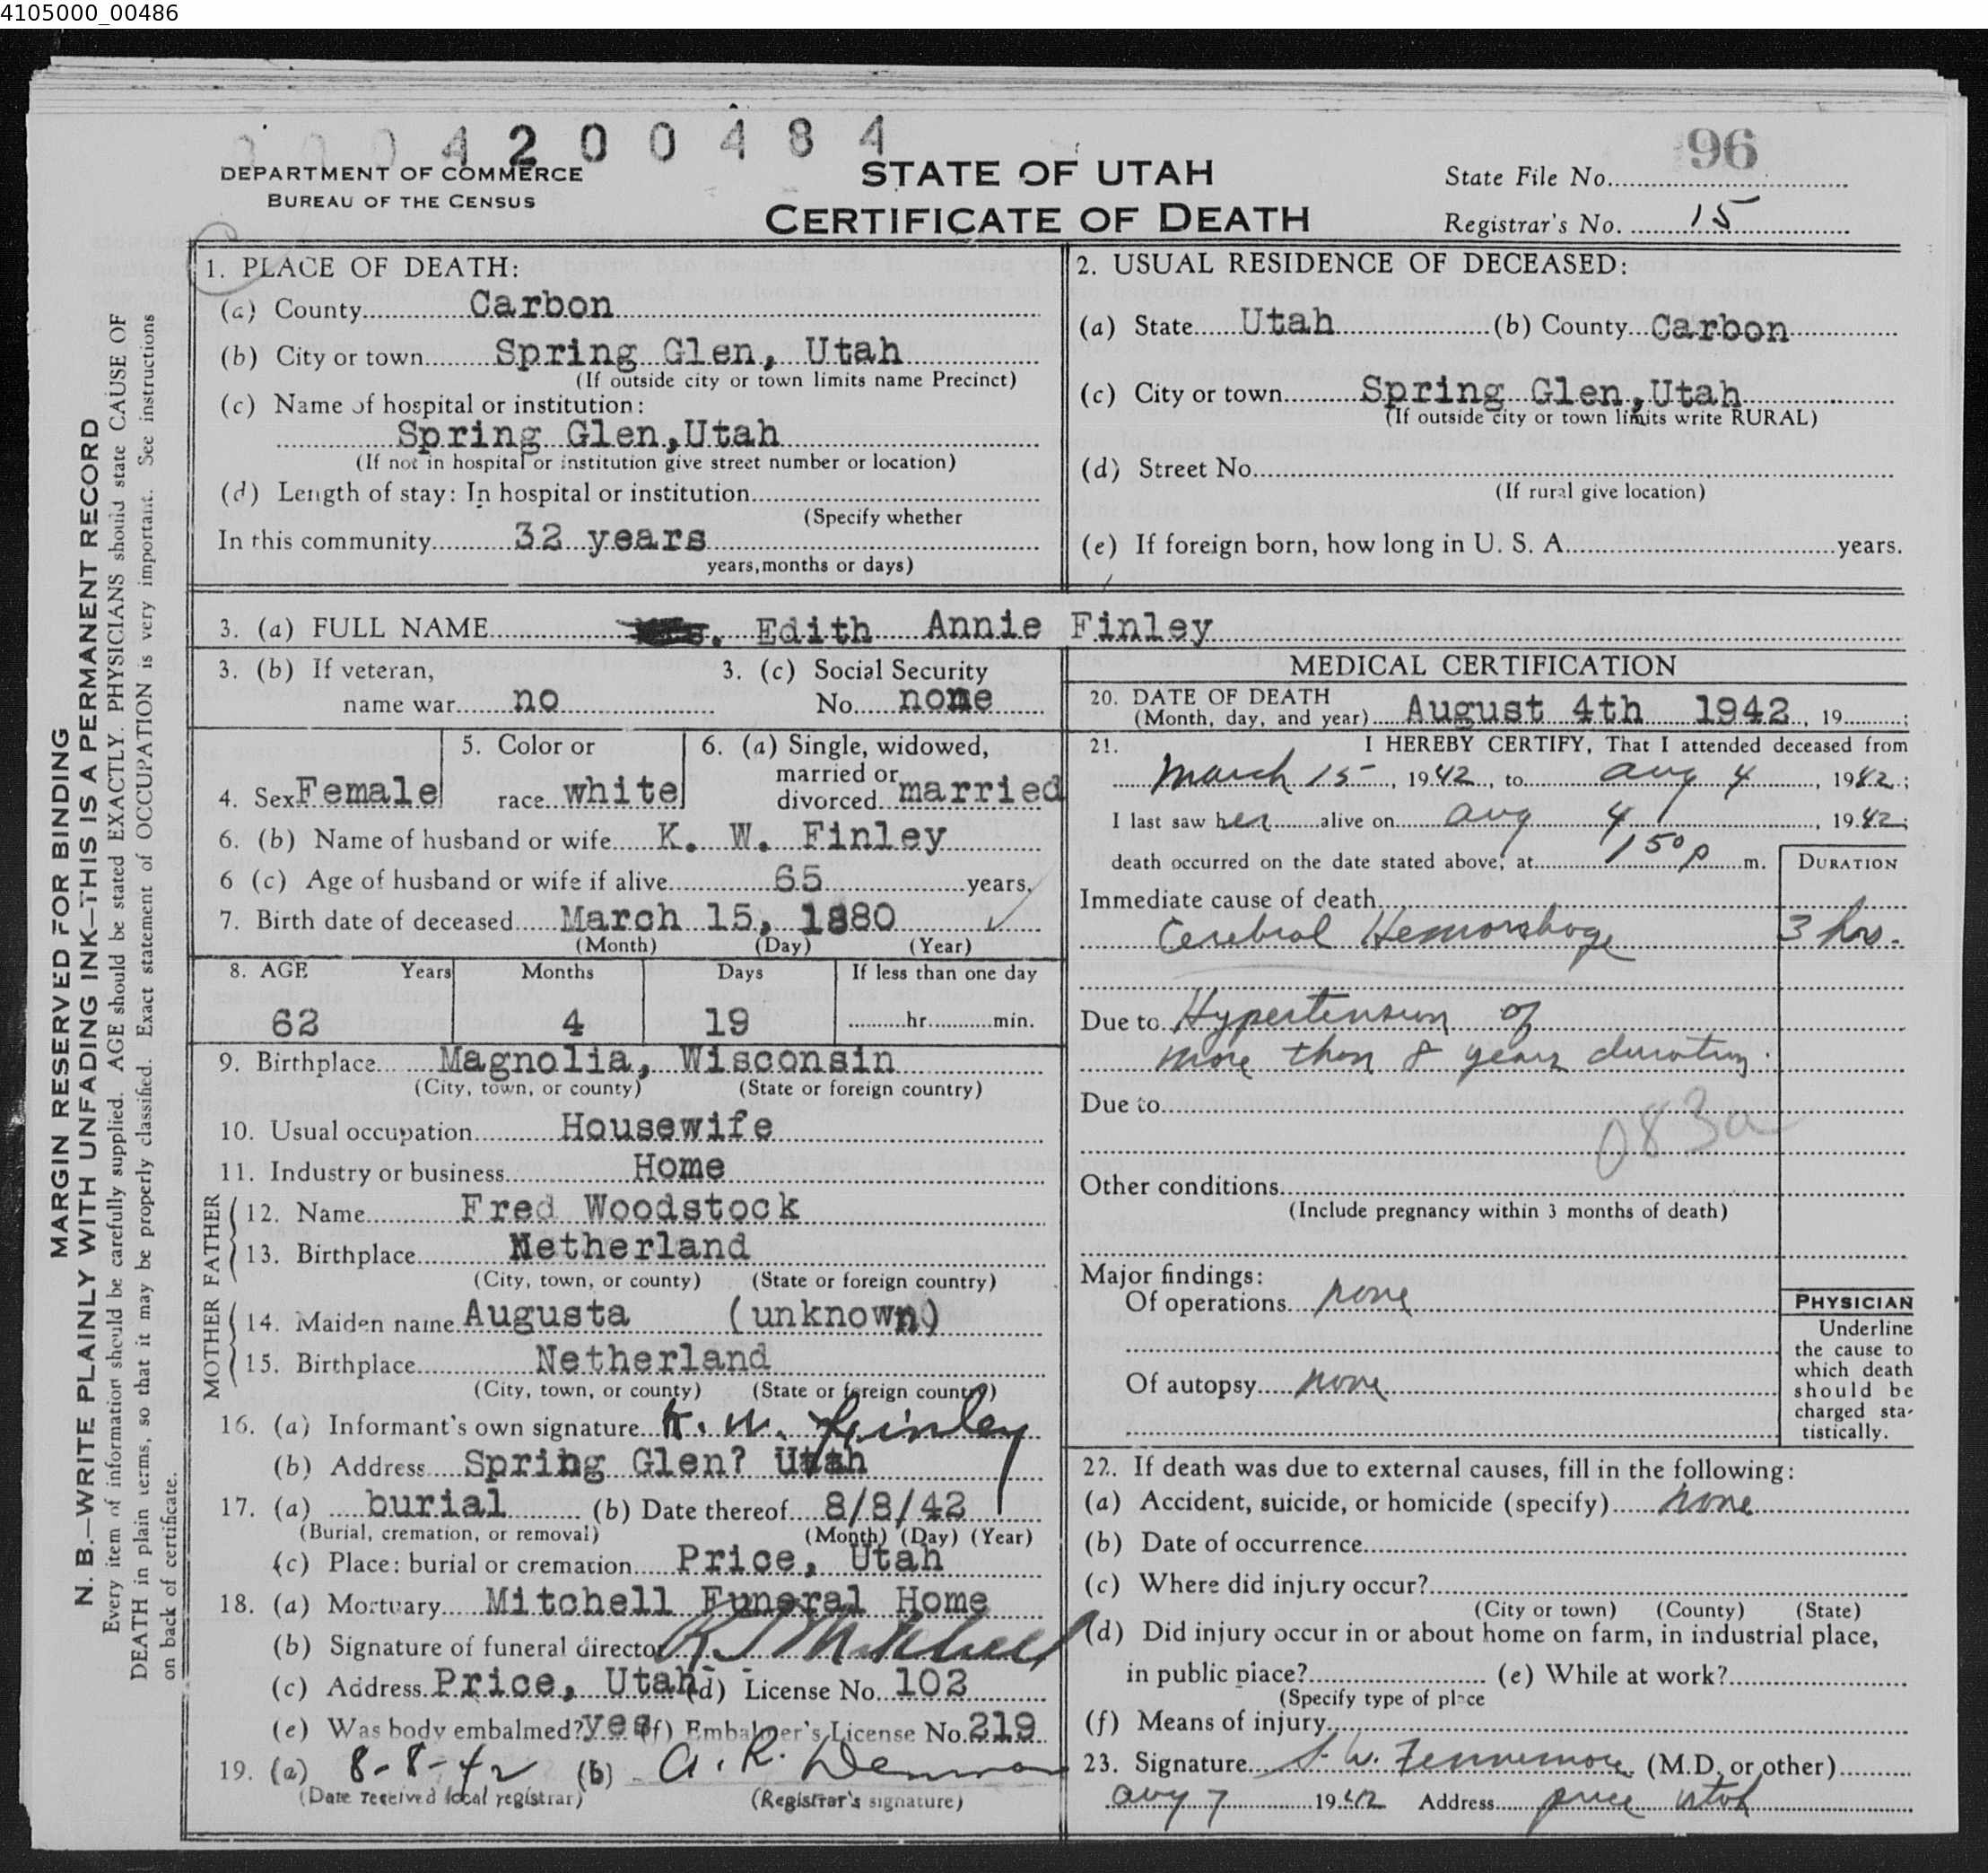 4105000_00486
0004200484
96
DEPARTMENT OF COMMERCE
BUREAU OF THE CENSUS
STATE OF UTAH
CERTIFICATE OF DEATH
State File No.
Registrar's No. 15
MARGIN RESERVED FOR BINDING
N. B.—WRITE PLAINLY WITH UNFADING INK—THIS IS A PERMANENT RECORD
Every item of information should be carefully supplied. AGE should be stated EXACTLY. PHYSICIANS should state CAUSE OF
DEATH in plain terms, so that it may be properly classified. Exact statement of OCCUPATION is very important. See instructions
on back of certificate.
1. PLACE OF DEATH:
(a) County Carbon
(b) City or town Spring Glen, Utah
(If outside city or town limits name Precinct)
(c) Name of hospital or institution:
Spring Glen,Utah
(If not in hospital or institution give street number or location)
(d) Length of stay: In hospital or institution
(Specify whether
In this community 32 years
years, months or days)
2. USUAL RESIDENCE OF DECEASED:
(a) State Utah (b) County Carbon
(c) City or town Spring Glen,Utah
(If outside city or town limits write RURAL)
(d) Street No.
(If rural give location)
(e) If foreign born, how long in U. S. A. years.
3. (a) FULL NAME Edith Annie Finley
3. (b) If veteran,
name war no
3. (c) Social Security
No. none
4. Sex Female
5. Color or
race white
6. (a) Single, widowed,
married or
divorced married
6. (b) Name of husband or wife K. W. Finley
6 (c) Age of husband or wife if alive 65 years.
7. Birth date of deceased March 15, 1880
(Month) (Day) (Year)
8. AGE Years Months Days If less than one day
62 4 19 hr. min.
9. Birthplace Magnolia, Wisconsin
(City, town, or county) (State or foreign country)
10. Usual occupation Housewife
11. Industry or business Home
FATHER
12. Name Fred Woodstock
13. Birthplace Netherland
(City, town, or county) (State or foreign country)
MOTHER
14. Maiden name Augusta (unknown)
15. Birthplace Netherland
(City, town, or county) (State or foreign country)
16. (a) Informant's own signature K. W. Finley
(b) Address Spring Glen? Utah
17. (a) burial (b) Date thereof 8/8/42
(Burial, cremation, or removal) (Month) (Day) (Year)
(c) Place: burial or cremation Price, Utah
18. (a) Mortuary Mitchell Funeral Home
(b) Signature of funeral director R J Mitchell
(c) Address Price, Utah (d) License No. 102
(e) Was body embalmed? yes (f) Embalmer's License No. 219
19. (a) 8-8-42 (b) A. R. Denman
(Date received local registrar) (Registrar's signature)
MEDICAL CERTIFICATION
20. DATE OF DEATH
(Month, day, and year) August 4th 1942, 19 ;
21. I HEREBY CERTIFY, That I attended deceased from
March 15, 1942, to Aug 4, 1942;
I last saw her alive on Aug 4, 1942;
death occurred on the date stated above, at 1 50 p m.
DURATION
Immediate cause of death
Cerebral Hemorrhage 3 hrs.
Due to Hypertension of
more than 8 years duration.
Due to
083a
Other conditions
(Include pregnancy within 3 months of death)
Major findings:
Of operations none
Of autopsy none
PHYSICIAN
Underline
the cause to
which death
should be
charged sta-
tistically.
22. If death was due to external causes, fill in the following:
(a) Accident, suicide, or homicide (specify) none
(b) Date of occurrence
(c) Where did injury occur?
(City or town) (County) (State)
(d) Did injury occur in or about home on farm, in industrial place,
in public place? (e) While at work?
(Specify type of place
(f) Means of injury
23. Signature S. W. Fennemore (M.D. or other)
Aug 7 1942 Address Price Utah